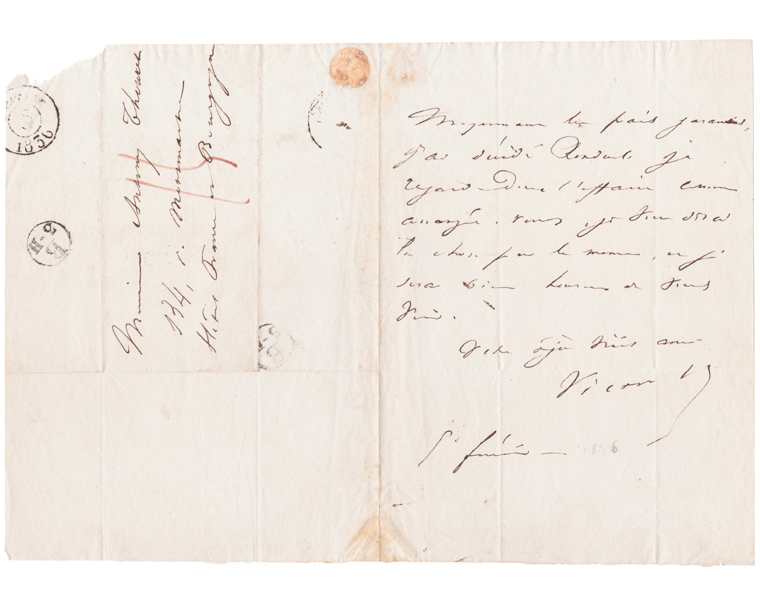 Moyennant les frais garantis,
j'ai décidé Renduel. je
regarde donc l'affaire comme
arrangée. venez, je vous dirai
la chose par le menu, et je
serai bien heureux de vous
voir.
ami
Victor H
février 1836
Monsieur Antony Thouret
134, r. Montmartre
Hôtel France et Bourgogne
1836